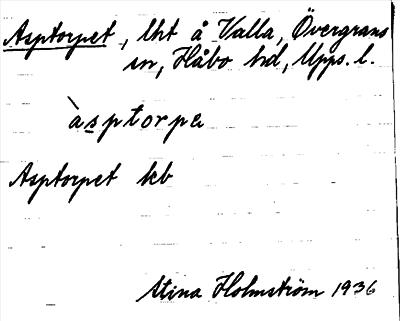 Asptorpet, lht å Valla, Övergrans
sn, Håbo hd, Upps. l.
àsptorpa
Asptorpet kb
Stina Holmström 1936